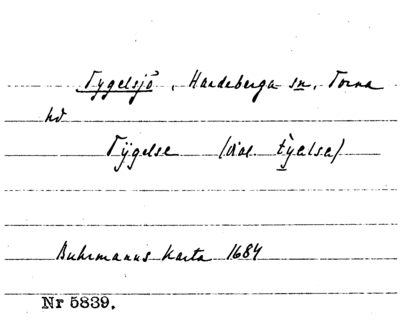 Tygelsjö, Hardeberga sn, Torna
hd
Tÿgelse (dial. tyalsa)
Buhrmanns karta 1684
Nr 5839.